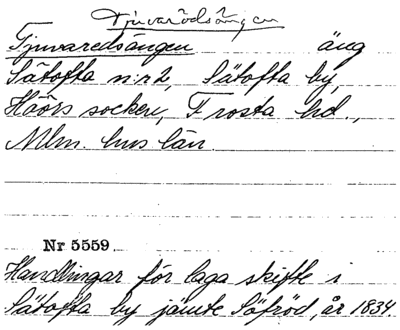 Tjuvarödsängen
Tjuvaredsängen äng
Sätofta n:r 2, Sätofta by,
Höörs socken, Frosta hd.,
Mlm. hus län.
Nr 5559
Handlingar för laga skifte i
Sätofta by jämte Söfröd, år 1834.